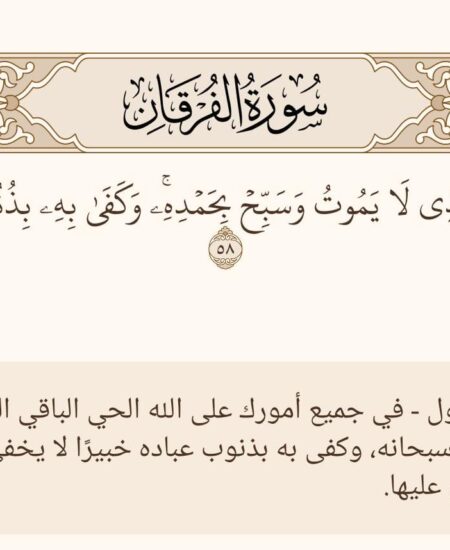 سُورَةُ الفُرْقَانِ
لَا يَمُوتُ وَسَبِّحۡ بِحَمۡدِهِۦۚ وَكَفَىٰ بِهِۦ
٥٨
- في جميع أمورك على الله الحي الباقي
سبحانه، وكفى به بذنوب عباده خبيرًا لا
عليها.